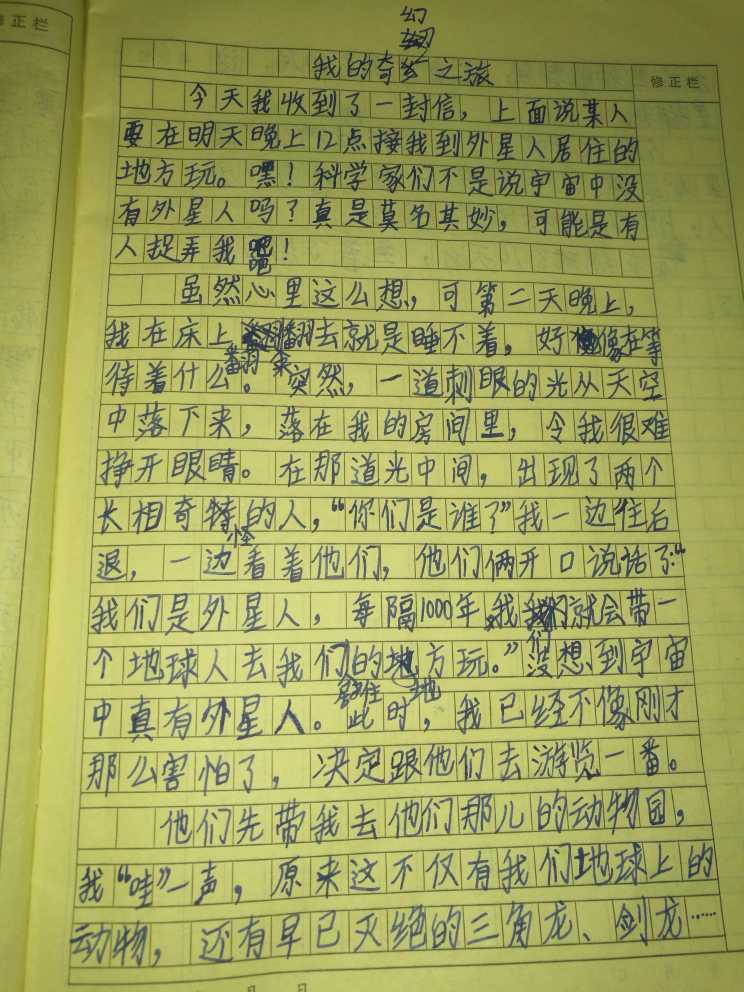 修正栏
修正栏
幻
我的奇之旅
今天我收到了一封信，上面说某人
要在明天晚上12点接我到外星人居住的
地方玩。嘿！科学家们不是说宇宙中没
有外星人吗？真是莫名其妙，可能是有
人捉弄我吧！
虽然心里这么想，可第二天晚上，
我在床上翻去就是睡不着，好像在等
翻来
待着什么。突然，一道刺眼的光从天空
中落下来，落在我的房间里，令我很难
挣开眼睛。在那道光中间，出现了两个
长相奇特的人，“你们是谁？”我一边往后
怪
退，一边看着他们，他们俩开口说话了：“
我们是外星人，每隔1000年，我就会带一
们
个地球人去我们的地方玩。”没想到宇宙
居住 地
中真有外星人。此时，我已经不像刚才
那么害怕了，决定跟他们去游览一番。
他们先带我去他们那儿的动物园，
我“哇”一声，原来这不仅有我们地球上的
动物，还有早已灭绝的三角龙、剑龙……